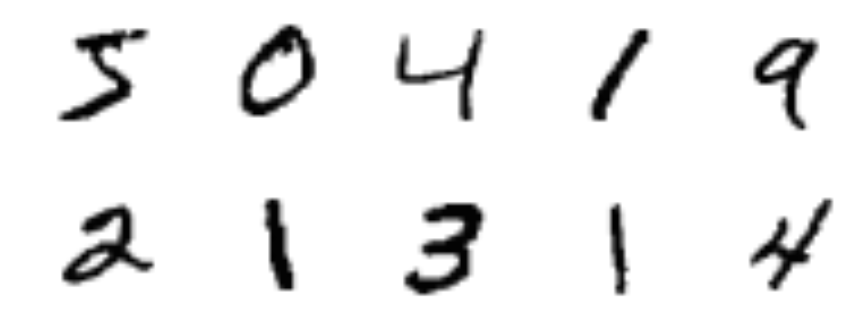 5 0 4 1 9
2 1 3 1 4